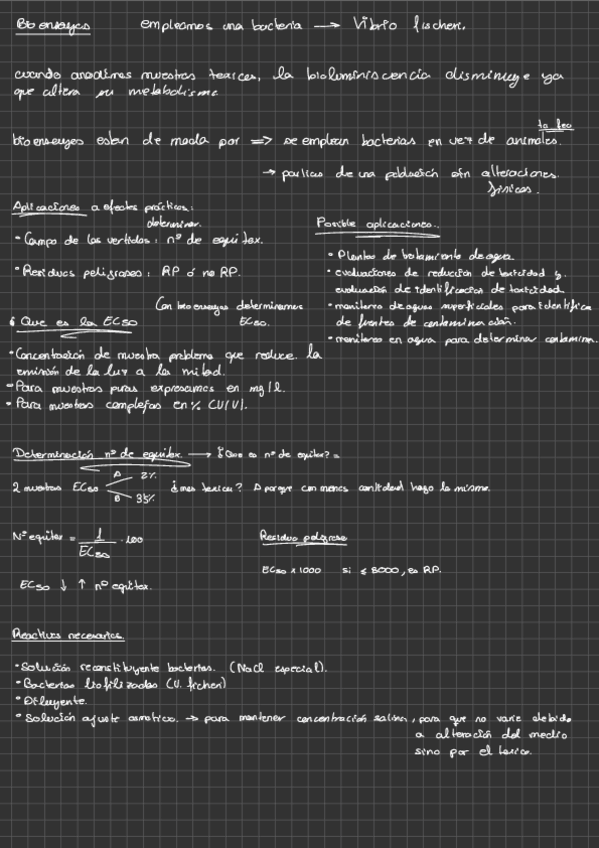 Bioensayos empleamos una bacteria → Vibrio fischeri.
cuando añadimos muestras toxicas, la bioluminiscencia disminuye ya
que altera su metabolismo
bioensayos estan de moda por => se emplean bacterias en vez de animales.
→ partimos de una población sin alteraciones
físicas.
Aplicaciones a efectos prácticos:
determinar.
• Campo de los vertidos: nº de equitox.
• Residuos peligrosos: RP ó no RP.
Posible aplicaciones..
• Plantas de tratamiento de agua
• evaluaciones de reducción de toxicidad y
evaluación de identificación de toxicidad.
• monitoreo de aguas superficiales para identifica
de fuentes de contaminación.
• monitoreo en agua para determinar contamina.
Con bioensayos determinamos
EC50.
¿ Que es la EC50
• Concentración de muestra problema que reduce la
emisión de la luz a la mitad.
• Para muestras puras expresamos en mg/l.
• Para muestras complejas en % (V/V).
Determinación nº de equitox. → ¿Que es nº de equitox? =
2 muestras EC50 A 2%
B 35%
¿mas toxica? A porque con menos cantidad hago lo mismo.
Nº equitox = 1/EC50 · 100
EC50 ↓ ↑ nº equitox.
Residuo peligroso
EC50 x 1000 si ≤ 3000, es RP.
Reactivos necesarios.
• Solución reconstituyente bacterias. (NaCl especial).
• Bacterias liofilizadas (V. fischeri)
• Diluyente.
• Solución ajuste osmotico. → para mantener concentración salina, para que no varie debido
a alteración del medio
sino por el toxico.